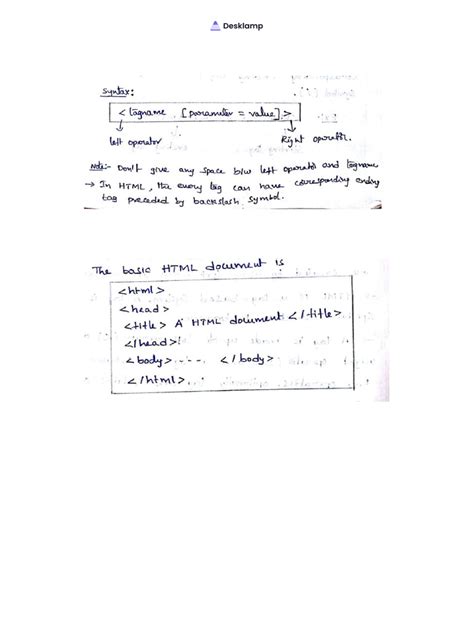 Desklamp
Syntax:
< tagname [parameter = value] >
left operator Right operator.
Note:- Don't give any space b/w left operator and tagname
→ In HTML, the every tag can have corresponding ending
tag preceded by backslash symbol.
The basic HTML document is
<html>
<head>
<title> A HTML document </title>
</head>
<body> ---. </body>
</html>